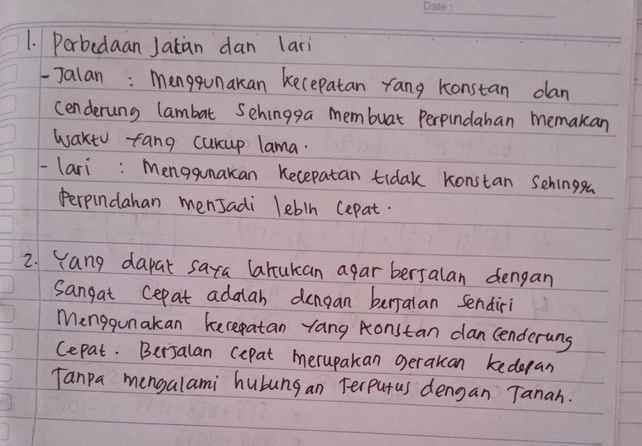 Date:
1. Perbedaan Jalan dan lari
- Jalan : Menggunakan kecepatan yang konstan dan
cenderung lambat sehingga membuat perpindahan memakan
waktu yang cukup lama.
- lari : Menggunakan kecepatan tidak konstan sehingga
perpindahan menjadi lebih cepat.
2. Yang dapat saya lakukan agar berjalan dengan
sangat cepat adalah dengan berjalan sendiri
menggunakan kecepatan yang konstan dan cenderung
cepat. Berjalan cepat merupakan gerakan kedepan
Tanpa mengalami hubungan Terputus dengan Tanah.